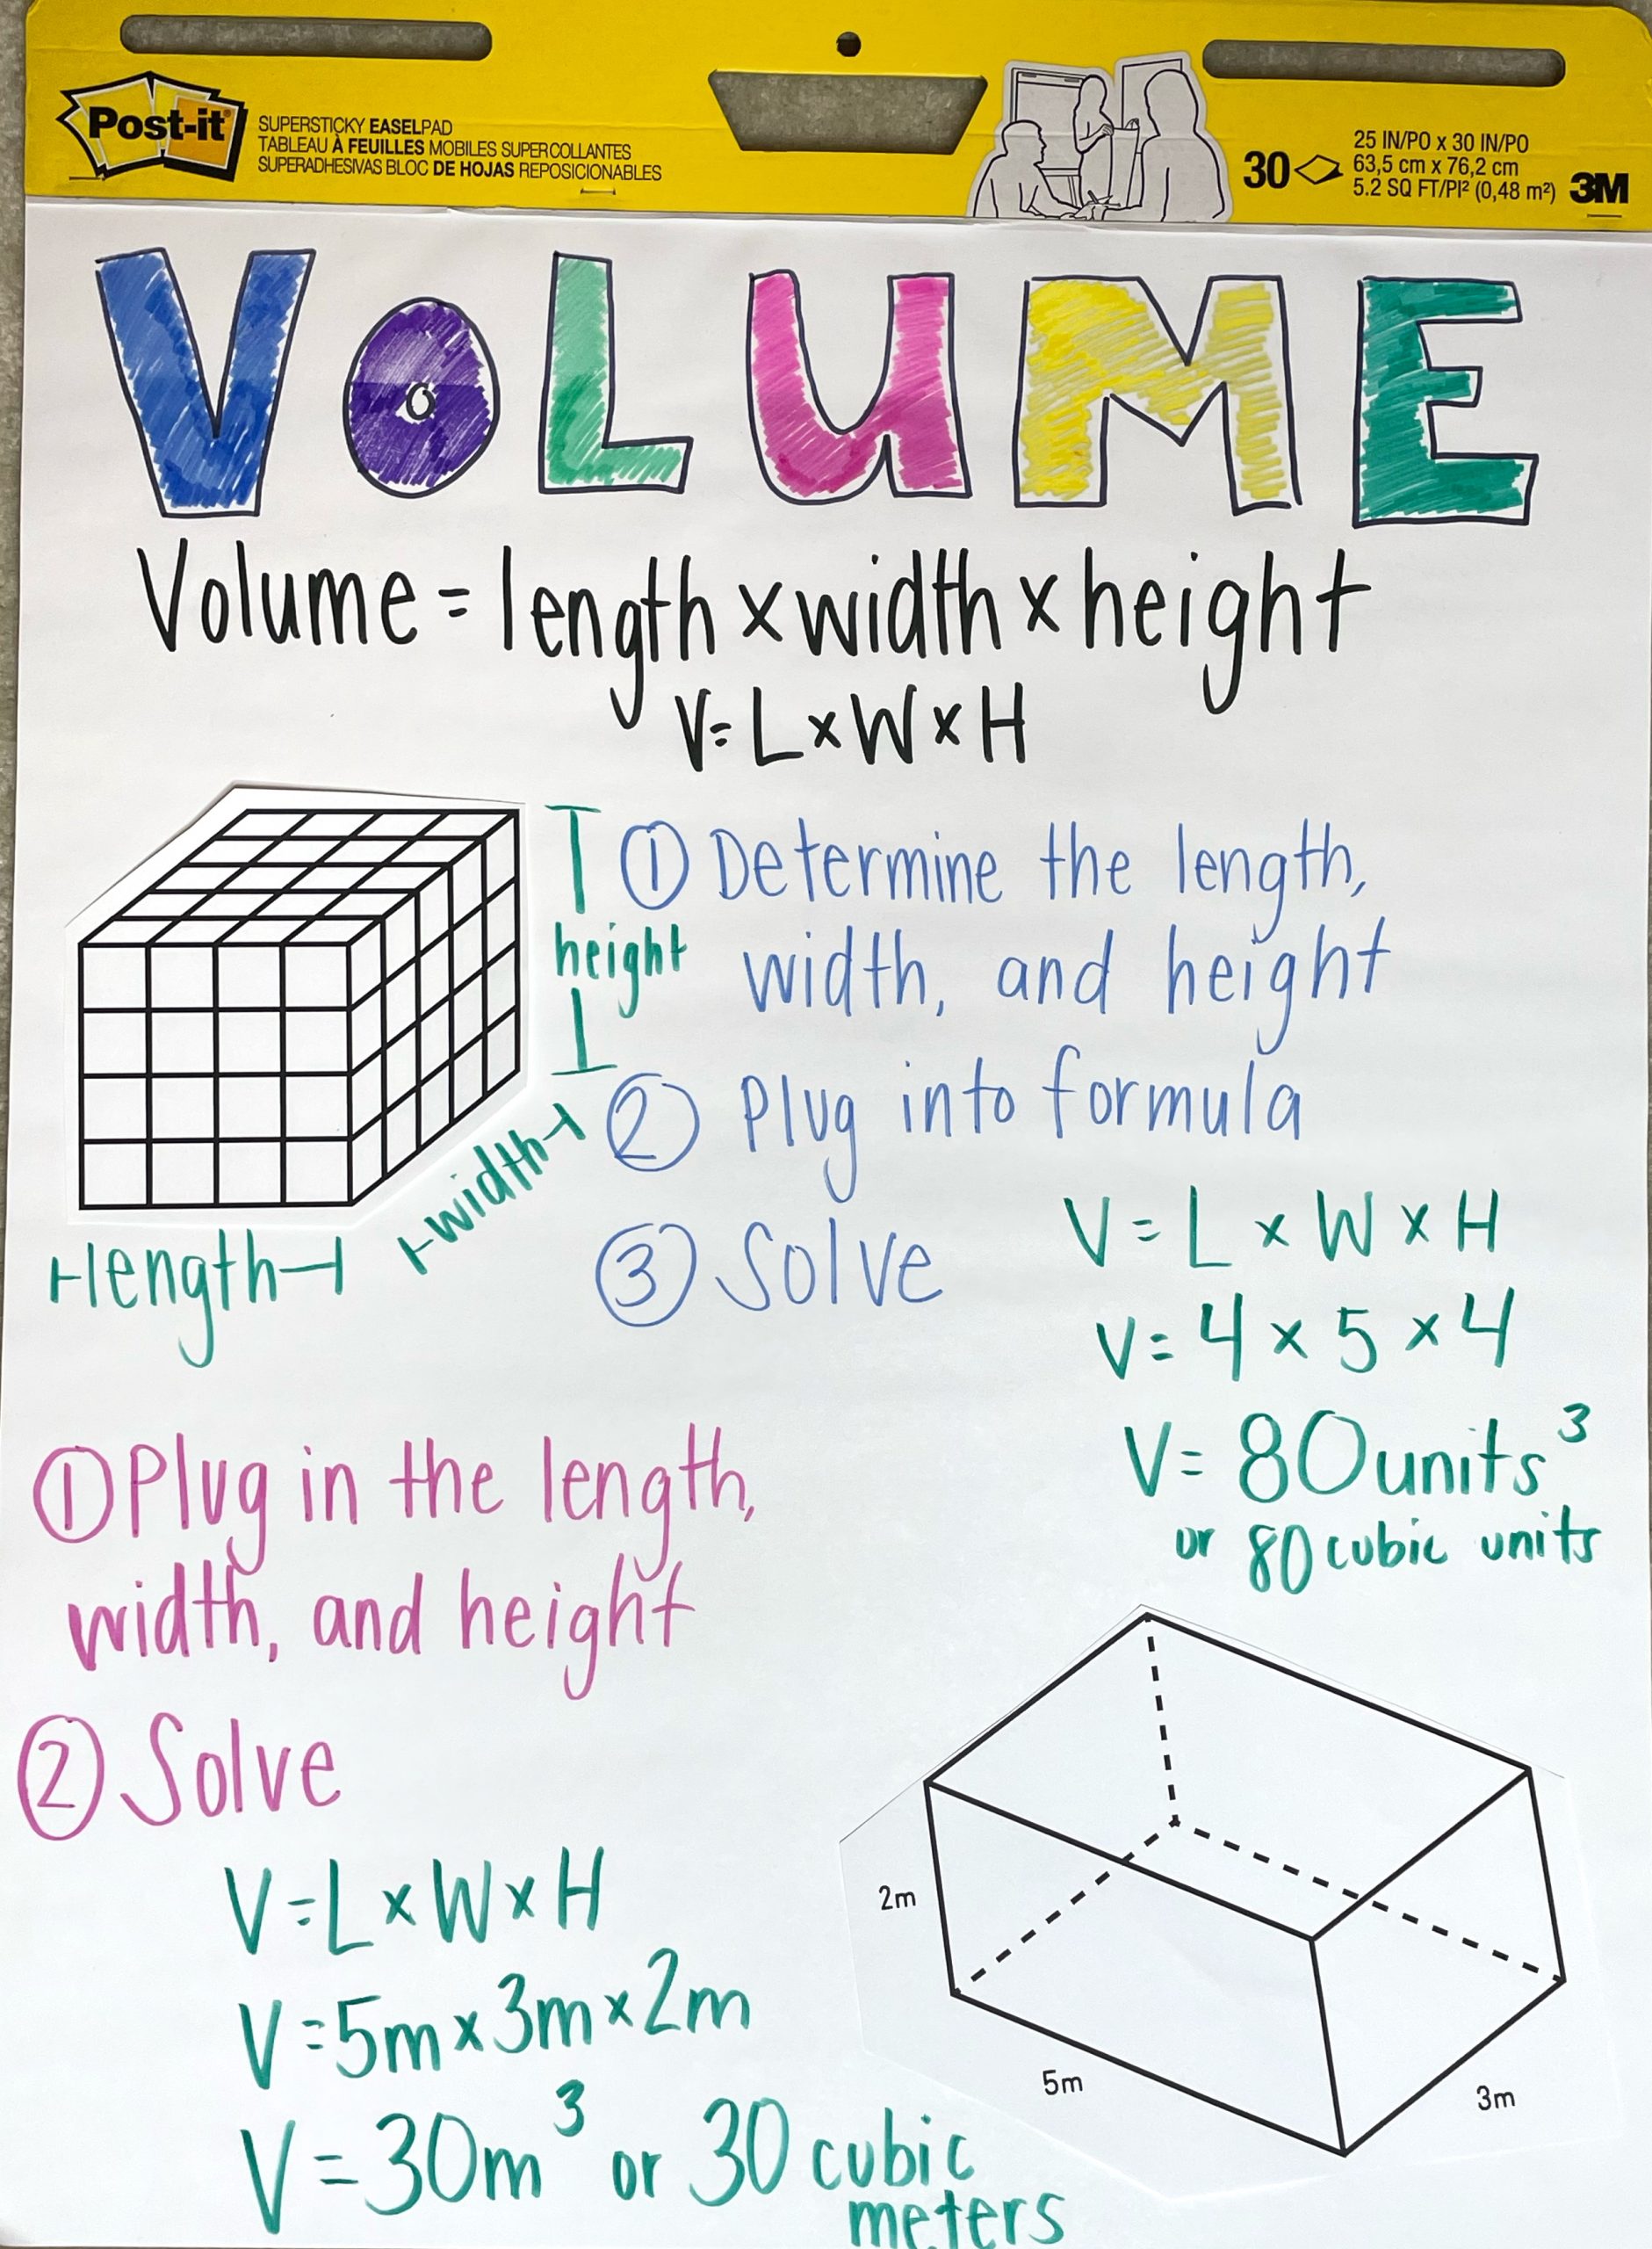 Post-it
SUPERSTICKY EASELPAD
TABLEAU À FEUILLES MOBILES SUPERCOLLANTES
SUPERADHESIVAS BLOC DE HOJAS REPOSICIONABLES
30
25 IN/PO x 30 IN/PO
63,5 cm x 76,2 cm
5.2 SQ FT/PI² (0,48 m²)
3M
VOLUME
Volume = length x width x height
V= L x W x H
height
width
length
① Determine the length,
width, and height
② Plug into formula
③ Solve
V = L x W x H
V = 4 x 5 x 4
V = 80 units³
or 80 cubic units
① Plug in the length,
width, and height
② Solve
V = L x W x H
V = 5m x 3m x 2m
V = 30m³ or 30 cubic
meters
2m
5m
3m